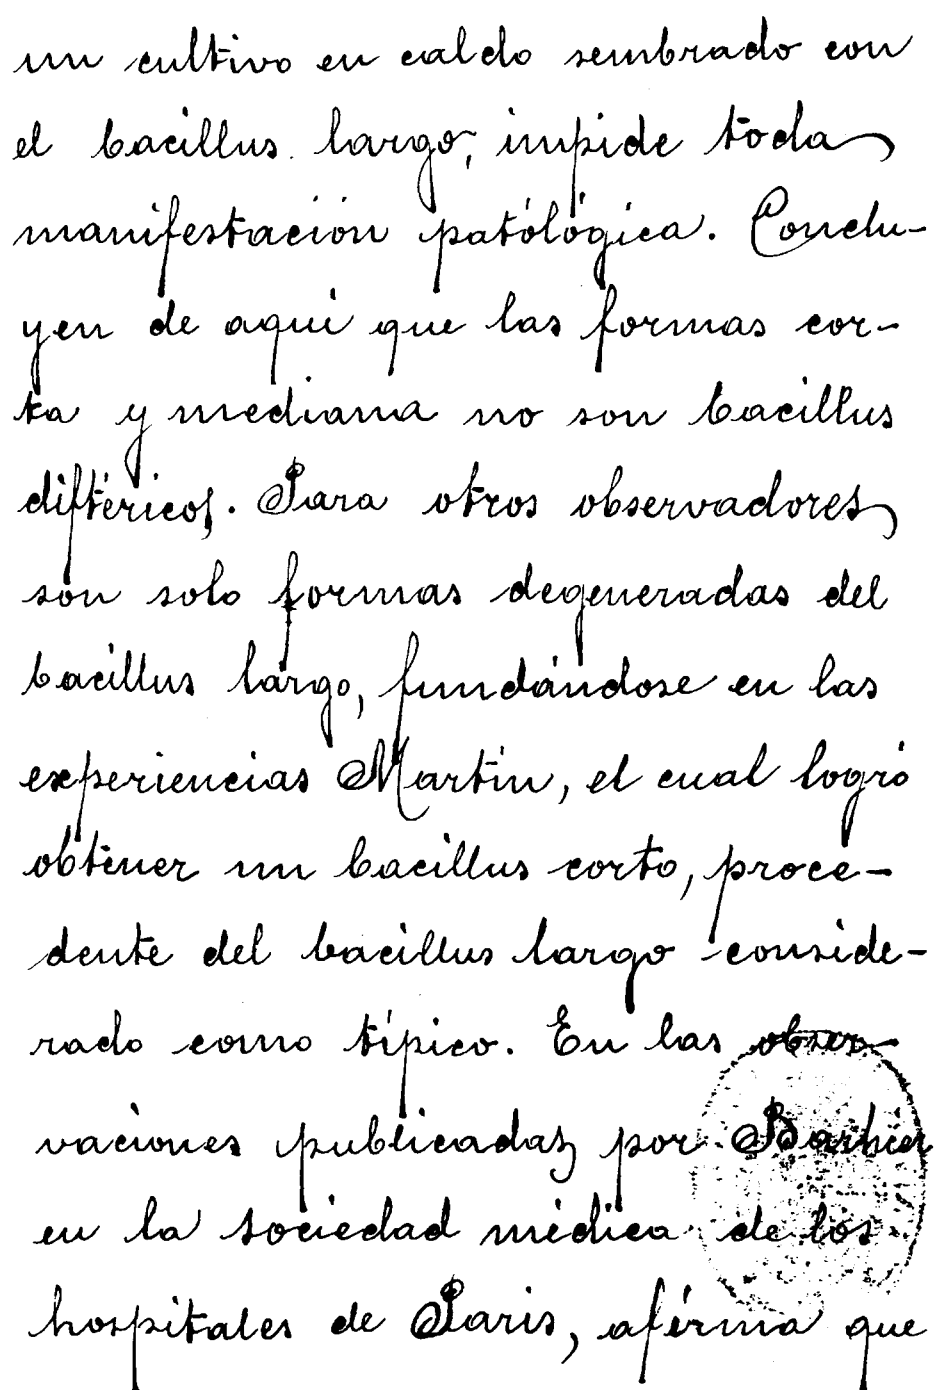 un cultivo en caldo sembrado con
el bacillus largo, impide toda
manifestación patológica. Conclu-
yen de aqui que las formas cor-
ta y mediana no son bacillus
diftéricos. Para otros observadores
son solo formas degeneradas del
bacillus largo, fundándose en las
experiencias Martin, el cual logró
obtener un bacillus corto, proce-
dente del bacillus largo conside-
rado como típico. En las obser-
vaciones publicadas por Barbier
en la sociedad médica de los
hospitales de Paris, afirma que